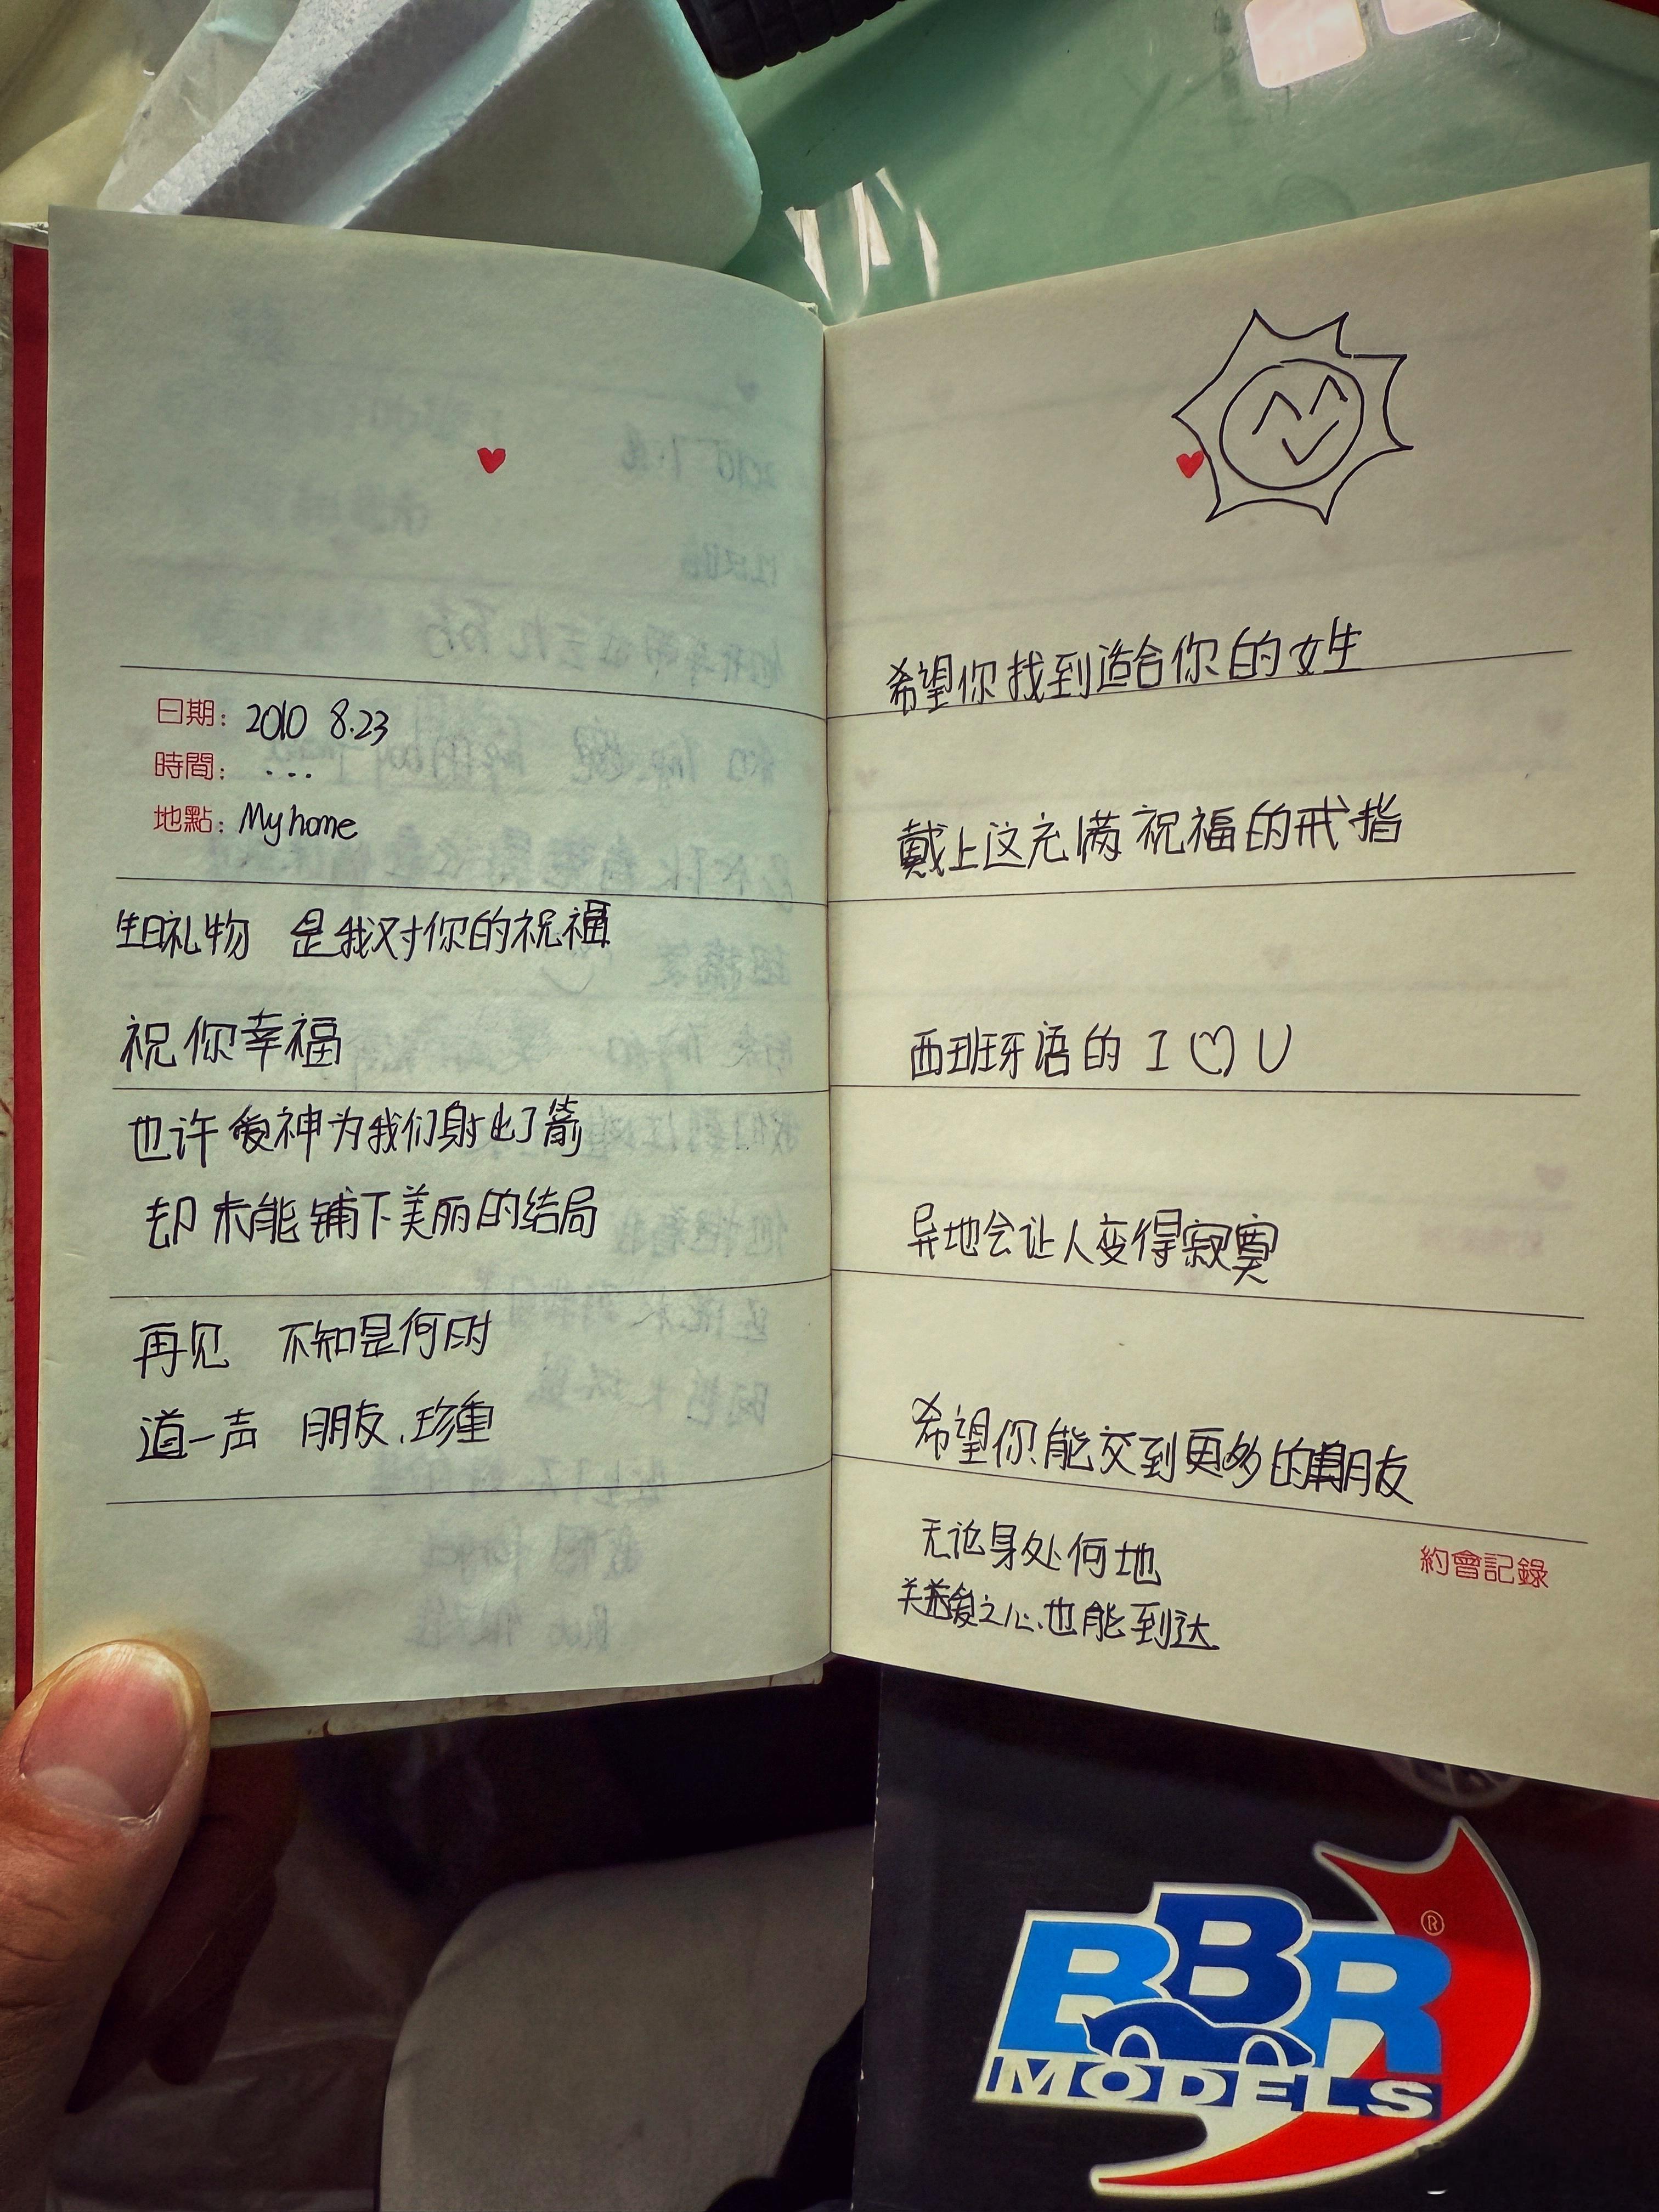 日期: 2010 8.23
時間: ...
地點: My home
生日礼物 是我对你的祝福
祝你幸福
也许爱神为我们射出了箭
却未能铺下美丽的结局
再见 不知是何时
道一声 朋友、珍重
希望你找到适合你的女生
戴上这充满祝福的戒指
西班牙语的 I ♡ U
异地会让人变得寂寞
希望你能交到更多的朋友
无论身处何地
关爱之心、也能到达
約會記錄
BBR®
MODELS